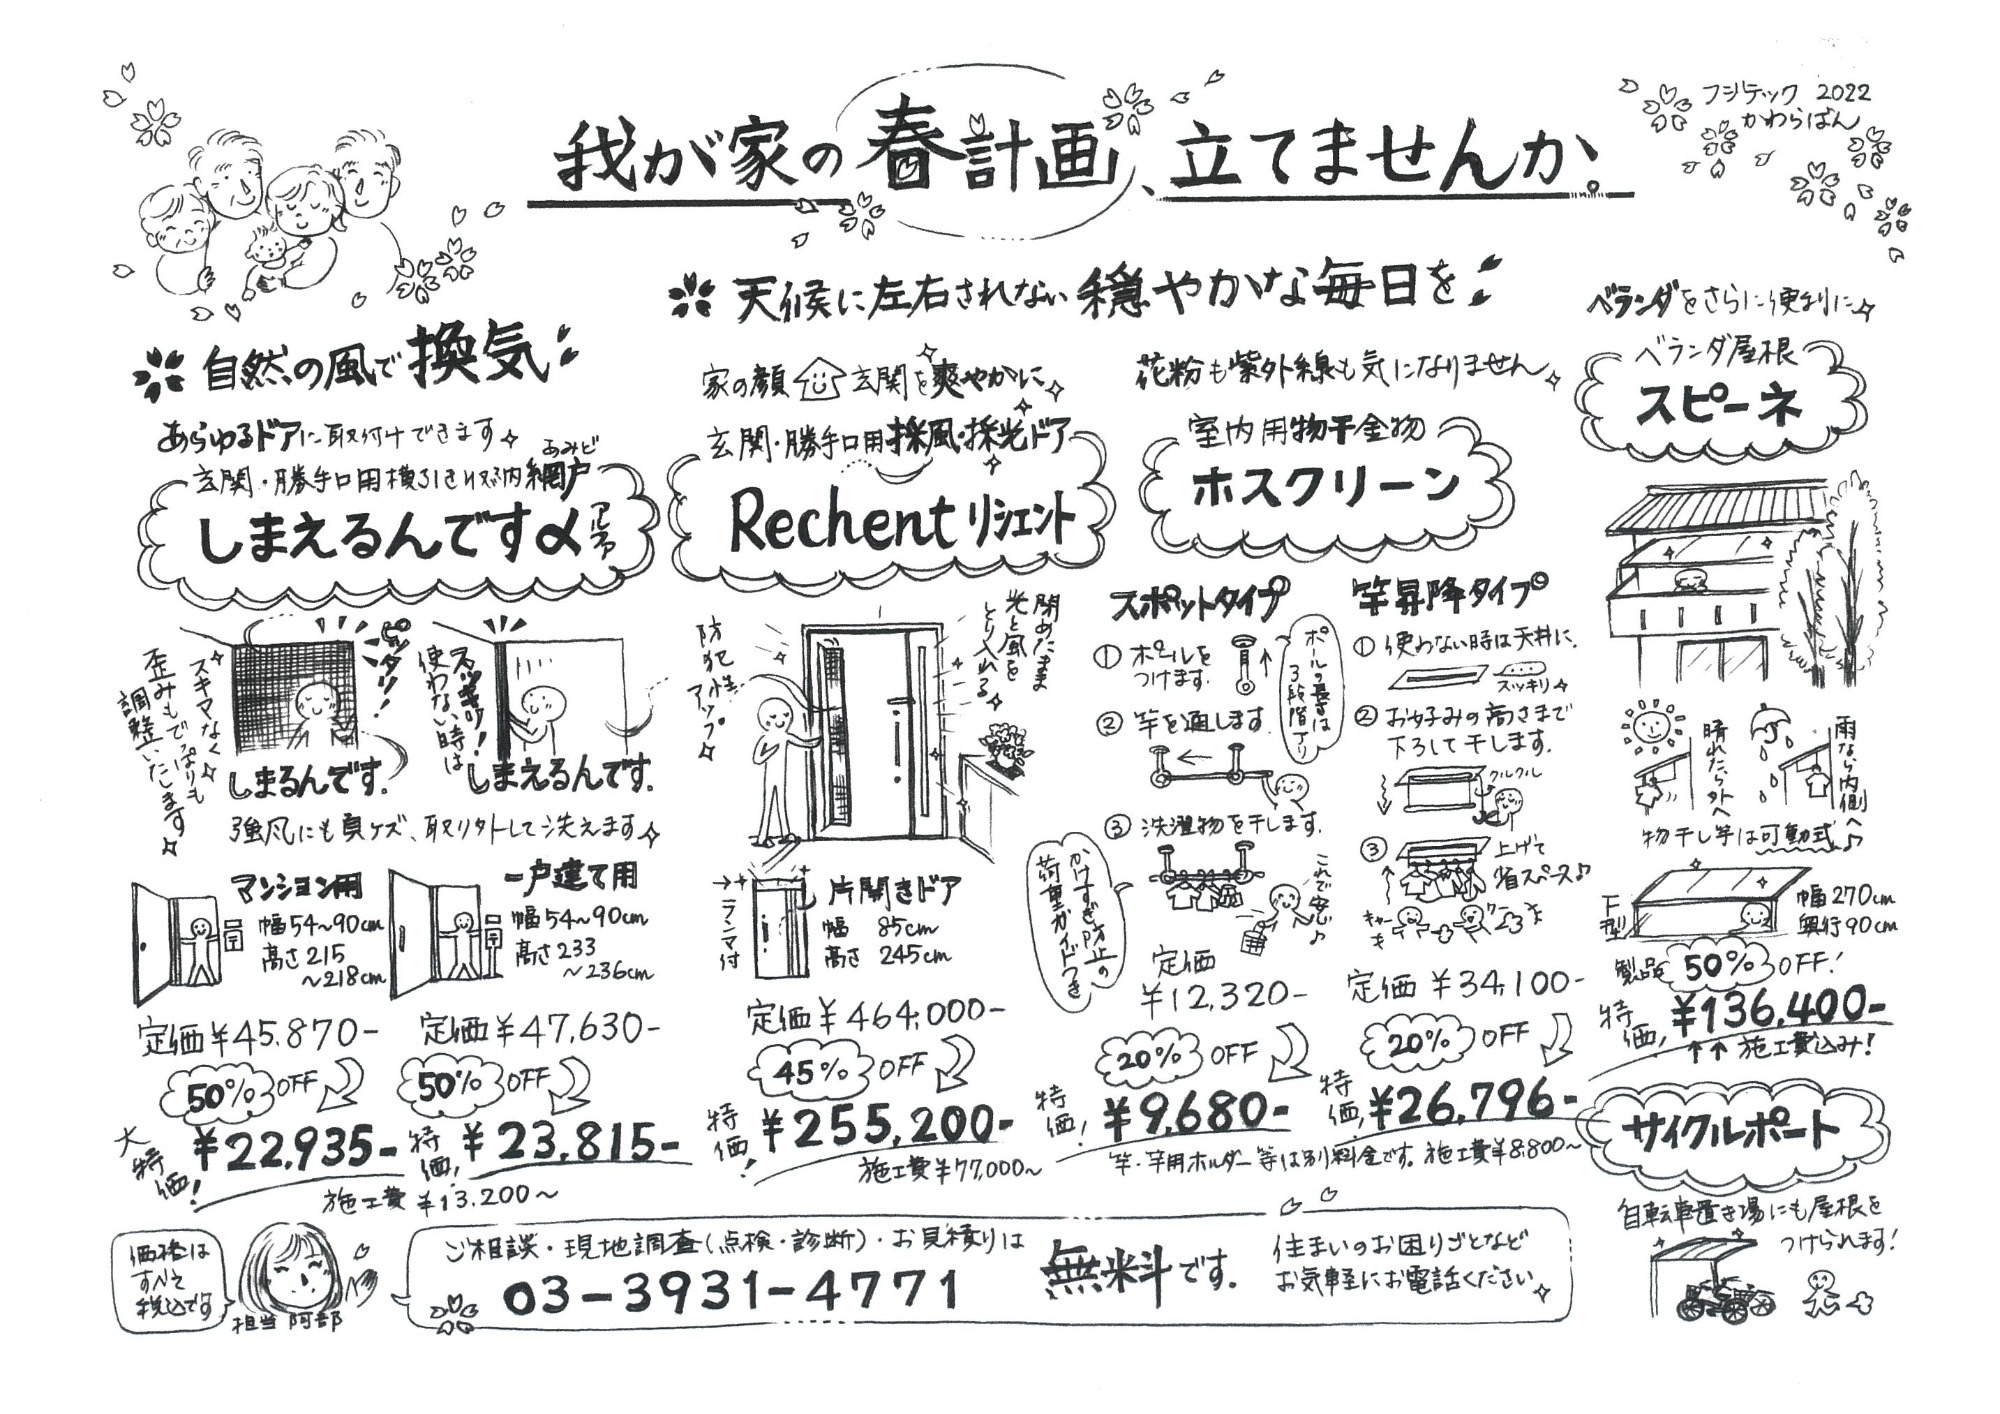 フジテック 2022
かわらばん
我が家の春計画、立てませんか。
自然の風で換気
あらゆるドアに取付けできます
玄関・勝手口用横引き収納網戸
あみど
しまえるんですα
アルファ
スキマなく
歪みもでっぱりも
調整いたします
ピッタリ!
しまるんです.
使わない時は
スッキリ!
しまえるんです.
強風にも負ケズ、取り外して洗えます
マンション用
幅54~90cm
高さ215
~218cm
定価¥45,870-
50% OFF
大特価!
¥22,935-
一戸建て用
幅54~90cm
高さ233
~236cm
定価¥47,630-
50% OFF
特価!
¥23,815-
施工費 ¥13,200~
天候に左右されない穏やかな毎日を
家の顔 玄関を爽やかに
玄関・勝手口用採風・採光ドア
Rechent リシェント
防犯性
アップ
閉めたまま
光と風を
とり入れる
→ランマ付
片開きドア
幅 85cm
高さ 245cm
定価¥464,000-
45% OFF
特価!
¥255,200-
施工費¥77,000~
花粉も紫外線も気になりません
室内用物干金物
ホスクリーン
スポットタイプ
① ポールを
つけます.
ポールの長さは
3段階アリ
② 竿を通します.
③ 洗濯物を干します.
かけすぎ防止の
荷重ガイドつき
これで安心♪
定価
¥12,320-
20% OFF
特価!
¥9,680-
竿昇降タイプ
① 使わない時は天井に.
スッキリ
② お好みの高さまで
下ろして干します.
クルクル
③ 上げて
省スペース♪
キャーキャー
定価 ¥34,100-
20% OFF
特価!
¥26,796-
竿・竿用ホルダー等は別料金です. 施工費¥8,800~
ベランダをさらに便利に
ベランダ屋根
スピーネ
晴れたら外へ
雨なら内側へ♪
物干し竿は可動式♪
F型
幅270cm
奥行90cm
製品 50% OFF!
特価!
¥136,400-
↑↑ 施工費込み!
サイクルポート
自転車置き場にも屋根を
つけられます!
価格は
すべて
税込です
担当 阿部
ご相談・現地調査(点検・診断)・お見積りは
03-3931-4771
無料です.
住まいのお困りごとなど
お気軽にお電話ください